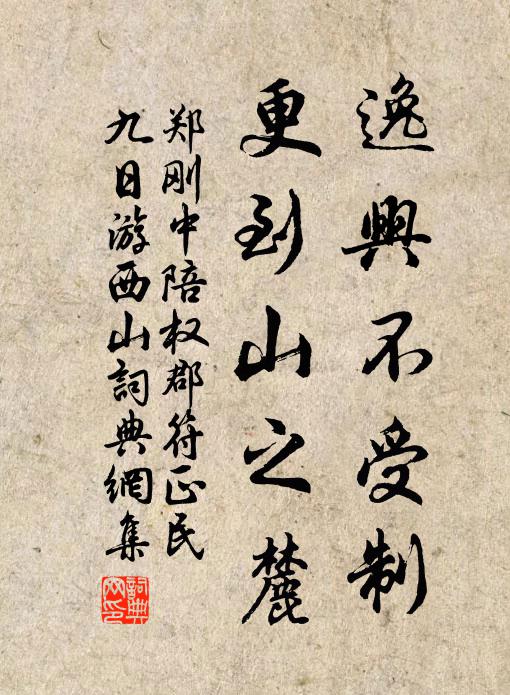 逸興不受制
更到山之麓
郑刚中陪权郡符正民
九日游西山詞典網集
詞典
网印